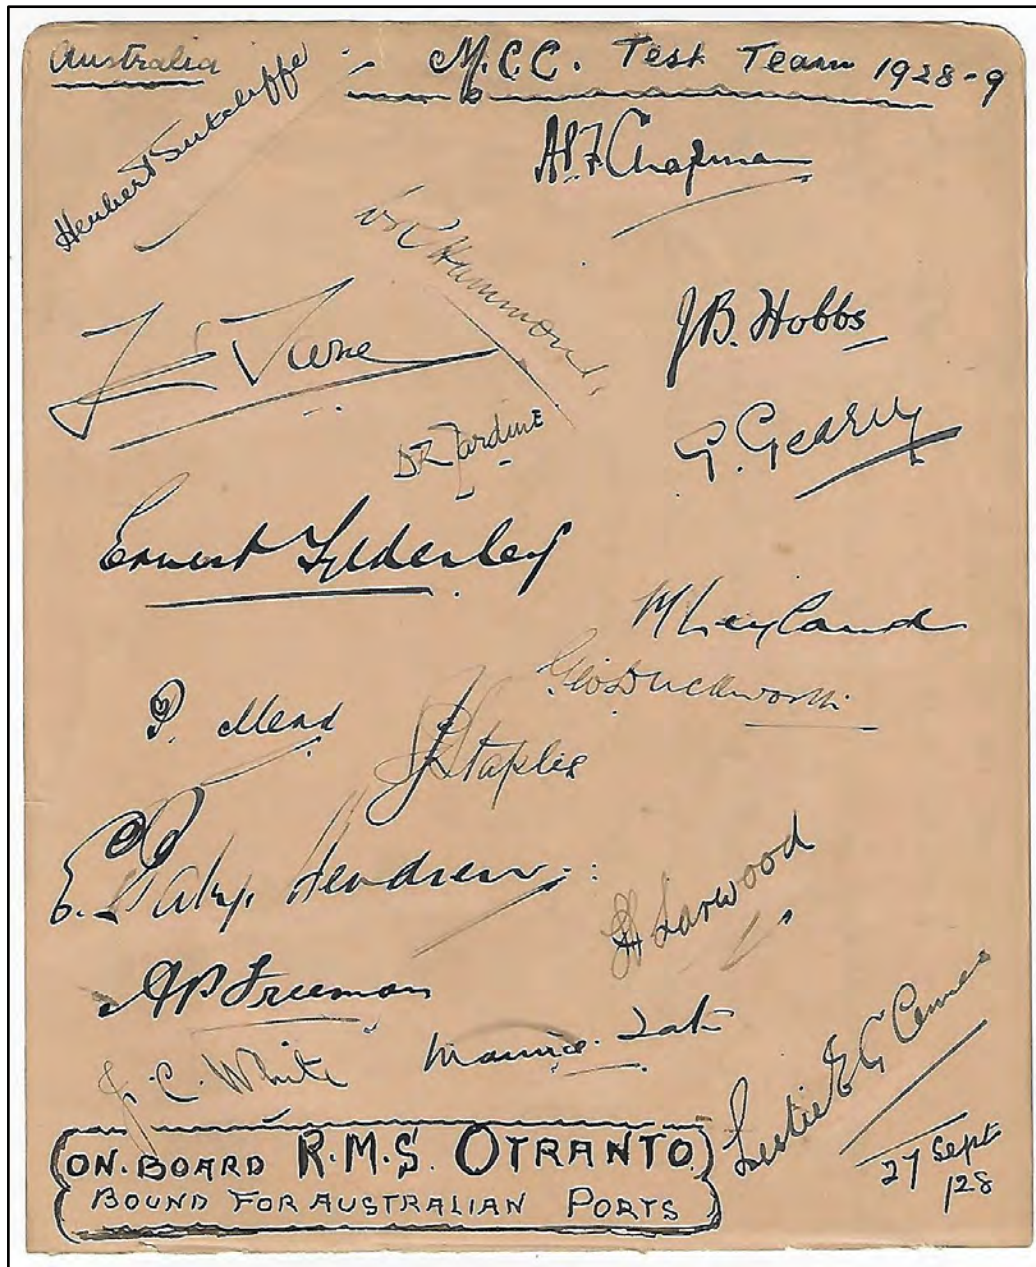 Australia :- M.C.C. Test Team 1928-9
Herbert Sutcliffe
A.P.F. Chapman
W R Hammond
J.B. Hobbs
D R Jardine
G. Geary
Ernest Tyldesley
M Leyland
Geo Duckworth
P. Mead
S J Staples
E. "Patsy" Hendren
H Larwood
A P Freeman
Maurice Tate
J. C. White
Leslie E G Ames
ON. BOARD R.M.S. OTRANTO
BOUND FOR AUSTRALIAN PORTS
27 Sept
/28